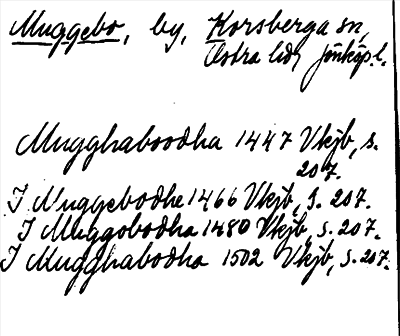 Muggebo, by, Korsberga sn,
Östra hd, Jönköp. l.
Mugghaboodha 1447 Vkjb, s.
207.
I Muggebodhe 1466 Vkjb, s. 207.
I Muggobodha 1480 Vkjb, s. 207.
I Mugghabodha 1502 Vkjb, s. 207.